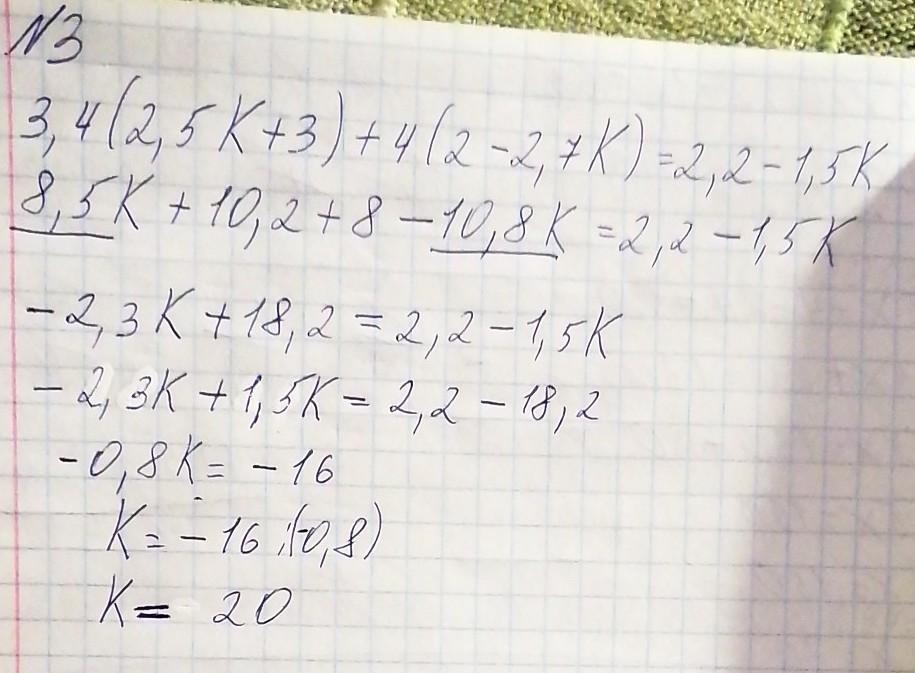 N3
3,4(2,5K+3)+4(2-2,7K)=2,2-1,5K
8,5K+10,2+8-10,8K=2,2-1,5K
-2,3K+18,2=2,2-1,5K
-2,3K+1,5K=2,2-18,2
-0,8K=-16
K=-16:(-0,8)
K=20